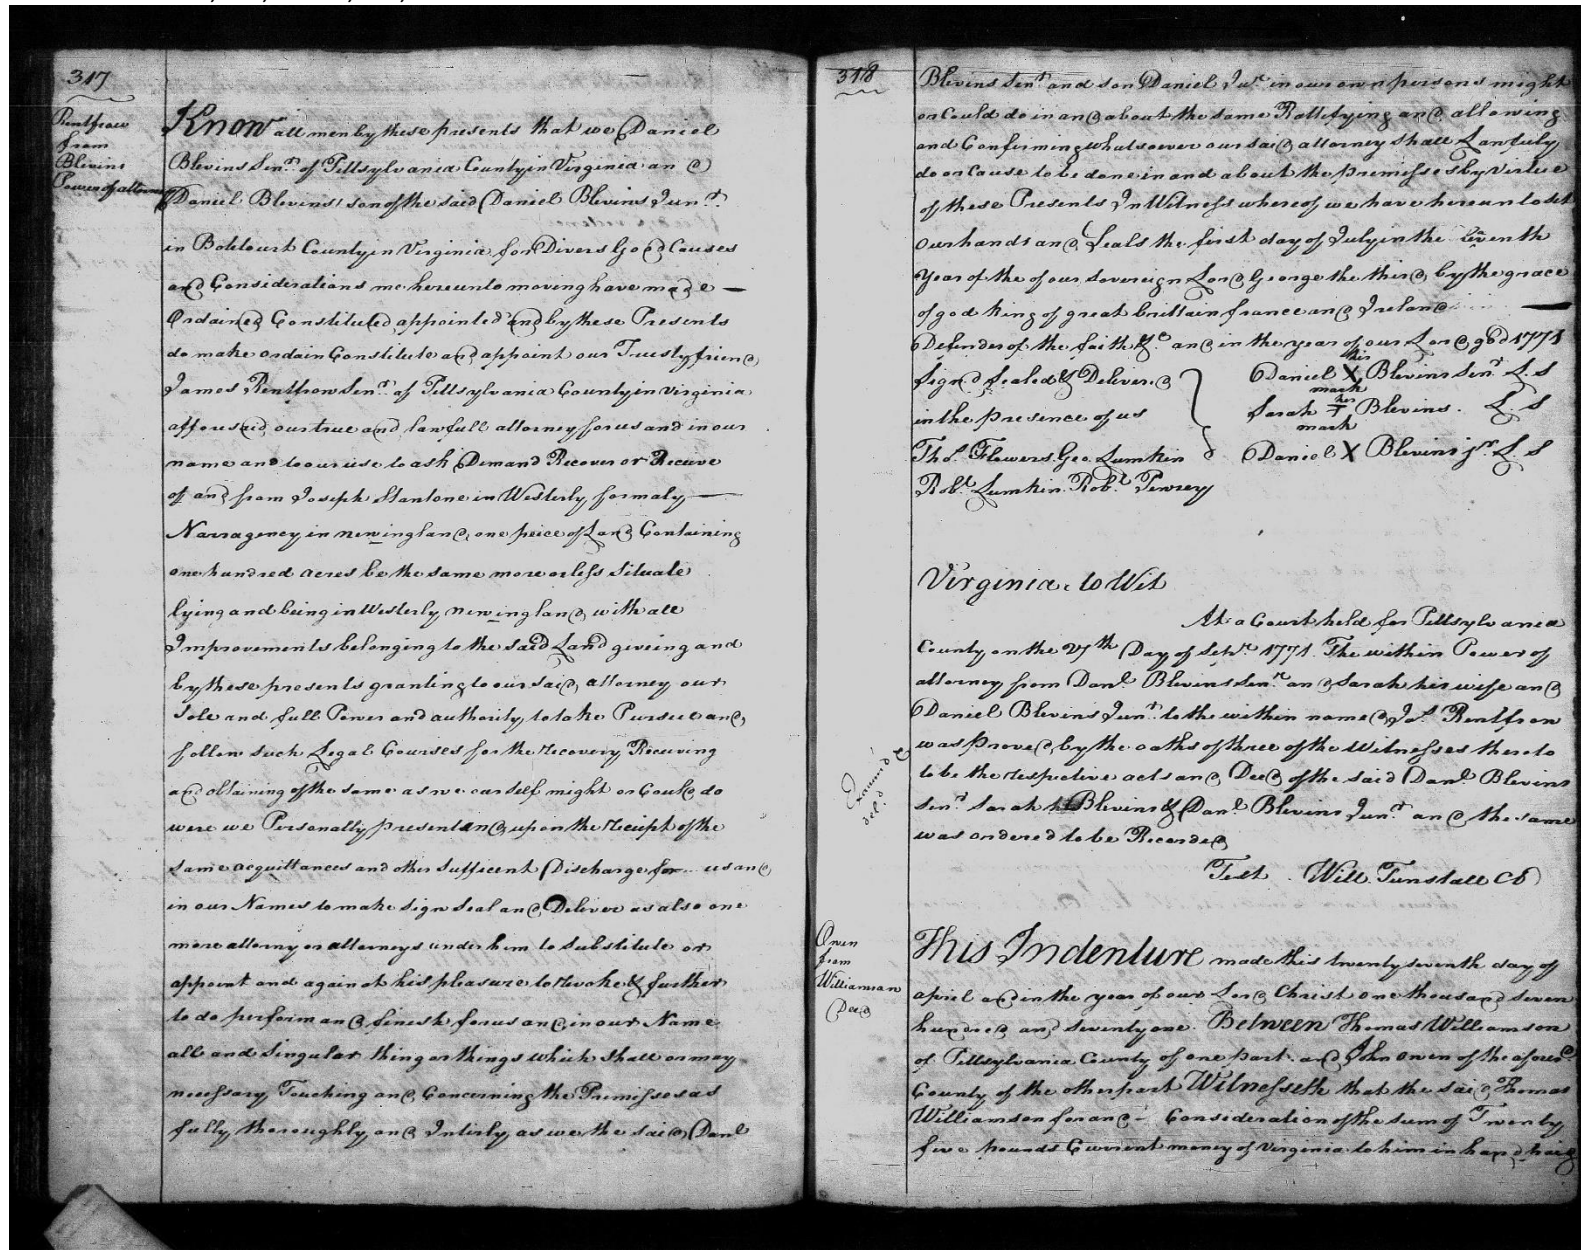 317
Rentfrow
from
Blevins
Power of attorney
Know all men by these presents that we Daniel
Blevins Senr. of Pittsylvania County in Virginia and
Daniel Blevins son of the said Daniel Blevins Junr.
in Botetourt County in Virginia for Divers Good Causes
and Considerations me hereunto moving have made —
Ordained Constituted appointed and by these Presents
do make ordain Constitute and appoint our Trusty friend
James Rentfrow Senr. of Pittsylvania County in Virginia
afforesaid our true and lawfull attorney for us and in our
name and to our use to ask Demand Recover or Receive
of and from Joseph Stantone in Westerly formaly —
Narragency in newingland, one peice of Land Containing
one hundred acres be the same more or less Situate
lying and being in Westerly newingland with all
Improvements belonging to the said Land giveing and
by these presents granting to our said attorney our
Sole and full Power and authority to take Pursue and
follow such Legal Courses for the recovery Receiving
and obtaining of the same as we ourself might or Could do
were we Personally present and upon the reciept of the
same acquittances and other Sufficent Discharge for us and
in our Names to make Sign Seal and Deliver as also one
more attorny or attorneys under him to Substitute or
appoint and again at his pleasure to revoke & further
to do perform and finish for us and in our Name
all and Singular thing or things which shall or may
necessary Touching and Concerning the Premisses as
fully thoroughly and Intirly as we the said Danl
318
Blevins Senr. and son Daniel Junr. in our own persons might
or Could do in and about the same Rattifying and allowing
and Confirming whatsoever our said attorney shall Lawfuly
do or Cause to be done in and about the premisses by virtue
of these Presents In Witness whereof we have hereunto set
our hands and Seals the first day of July in the eleventh
Year of the of our Sovereign Lord George the third by the grace
of god King of great brittain france and Ireland —
Defender of the faith &c. and in the year of our Lord god 1771
Sign'd Sealed & Delivered
in the presence of us
Thos. Flowers. Geo. Lumkin
Robt. Lumkin. Robt. Pewsey
his
Daniel X Blevins Senr. L. S
mark
her
Sarah T Blevins. L. S
mark
Daniel X Blevins jr. L. S
Virginia, to Wit
At a Court held for Pittsylvania
County on the 27th Day of Septr. 1771 The within Power of
attorney from Danl. Blevins Senr. and Sarah his wife and
Daniel Blevins Junr. to the within named Jas. Rentfrow
was Proved by the oaths of three of the Witnesses thereto
to be the respective acts and Deed of the said Danl. Blevins
Senr. Sarah Blevins & Danl. Blevins Junr. and the same
was ordered to be Recorded
Test. Will Tunstall CC
Examind &
del.d
Owen
from
Williamson
Deed
This Indenture made this twenty seventh day of
april and in the year of our Lord Christ one thousand seven
hundred and seventy one. Between Thomas Williamson
of Pittsylvania County of one part. and John owen of the aforesd.
County of the other part Witnesseth that the said Thomas
Williamson for and - Consideration of the sum of Twenty
five pounds Current money of Virginia to him in hand paid